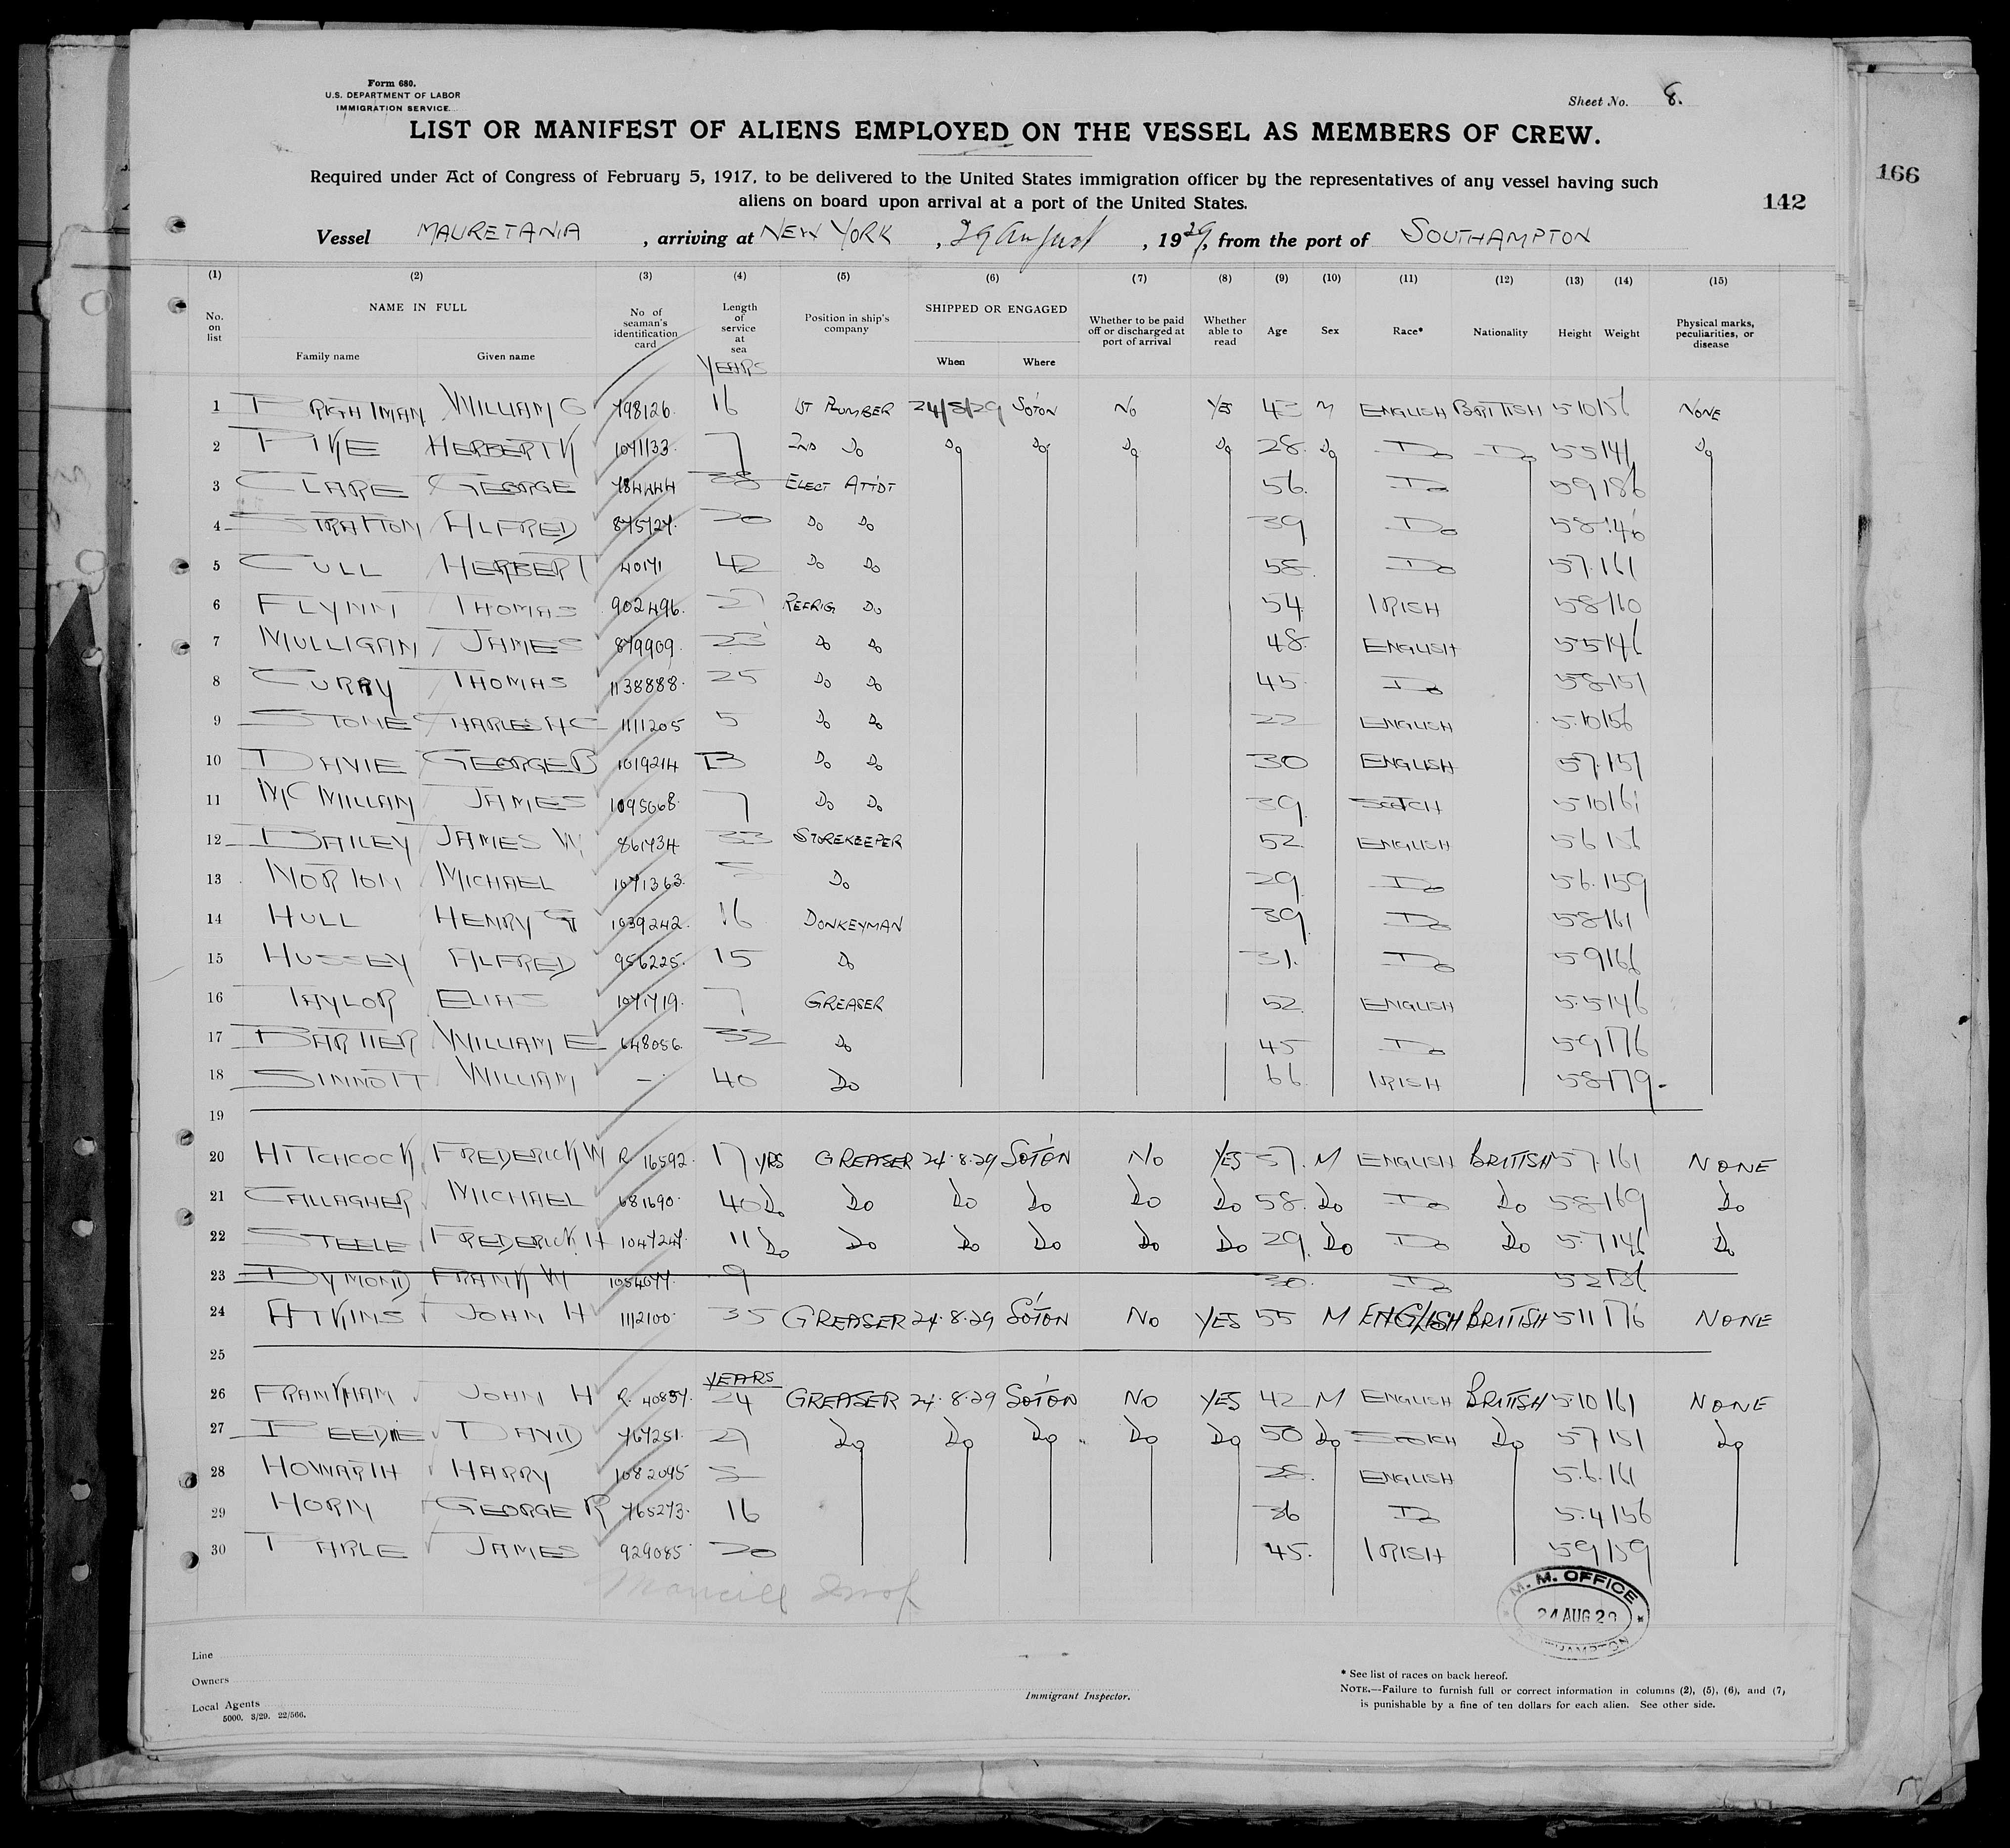 Form 680.
U.S. DEPARTMENT OF LABOR
IMMIGRATION SERVICE.
Sheet No. 8.
LIST OR MANIFEST OF ALIENS EMPLOYED ON THE VESSEL AS MEMBERS OF CREW.
166
Required under Act of Congress of February 5, 1917, to be delivered to the United States immigration officer by the representatives of any vessel having such
aliens on board upon arrival at a port of the United States.
142
Vessel MAURETANIA, arriving at NEW YORK, 29 August, 1929, from the port of SOUTHAMPTON
(1) (2) (3) (4) (5) (6) (7) (8) (9) (10) (11) (12) (13) (14) (15)
No. on list NAME IN FULL Family name Given name No. of seaman's identification card Length of service at sea YEARS Position in ship's company SHIPPED OR ENGAGED When Where Whether to be paid off or discharged at port of arrival Whether able to read Age Sex Race* Nationality Height Weight Physical marks, peculiarities, or disease
1 WILLIAM G 798126. 16 1ST PLUMBER 24/8/29 SOTON NO YES 43 M ENGLISH BRITISH 5 10 156 NONE
2 PIKE HERBERT K 1071133. 7 2ND Do Do Do Do Do 28. Do Do Do 5 5 141 Do
3 CLARE GEORGE 784444 38 ELECT ATTDT 56. Do 5 9 186
4 STRATTON ALFRED 875727. 20 Do Do 39 Do 5 8 146
5 CULL HERBERT 40171 42 Do Do 58. Do 5 7. 161
6 FLYNN THOMAS 902496. REFRIG Do 54 IRISH 5 8 160
7 MULLIGAN JAMES 879909. 23 Do Do 48. ENGLISH 5 5 146
8 CURRY THOMAS 1138888. 25 Do Do 45. Do 5 8 151
9 STONE CHARLES H C 1111205 5 Do Do 22 ENGLISH 5.10 156
10 DAVIE GEORGE B 1019214 13 Do Do 30 ENGLISH 5 7. 151
11 MC MILLAN JAMES 1095668. 7 Do Do 39 SCOTCH 5 10 161
12 BAILEY JAMES W. 861734 33 STOREKEEPER 52 ENGLISH 5 6 156
13 NORTON MICHAEL 1071363. 5 Do 29. Do 5 6. 159
14 HULL HENRY G 1039242. 16 DONKEYMAN 39 Do 5 8 161
15 HUSSEY ALFRED 956225. 15 Do 31. Do 5 9 166
16 TAYLOR ELIAS 1071719. 7 GREASER 52 ENGLISH 5.5 146
17 WILLIAM E 648056. 32 Do 45 Do 5 9 176
18 SINNOTT WILLIAM — 40 Do 66 IRISH 5 8 179.
19
20 HITCHCOCK FREDERICK W R. 16592. 17 YRS GREASER 24.8.29 SOTON NO YES 57. M ENGLISH BRITISH 5 7. 161 NONE
21 GALLAGHER MICHAEL 681690. 40 Do Do Do Do Do Do 58. Do Do Do 5 8 169 Do
22 STEELE FREDERICK H 1047247. 11 Do Do Do Do Do Do 29. Do Do Do 5.7 146 Do
23 DYMOND FRANK W 1054077. 9 30. Do 5 2 136
24 ATKINS JOHN H 1112100. 35 GREASER 24.8.29 SOTON NO YES 55 M ENGLISH BRITISH 5 11 176 NONE
25
YEARS
26 FRANKHAM JOHN H R. 40857. 24 GREASER 24.8.29 SOTON NO YES 42 M ENGLISH BRITISH 5.10 161 NONE
27 DAVID 767251. Do Do Do Do Do 50 Do SCOTCH Do 5 7 151 Do
28 HOWARTH HARRY 1082095 5 28. ENGLISH 5.6. 161
29 HORN GEORGE R 765273. 16 36 Do 5.4 156
30 JAMES 929085 20 45. IRISH 5 9 159
M. M. OFFICE
24 AUG 29
Line
Owners
Local Agents
5000. 3/29. 22/566.
Immigrant Inspector.
* See list of races on back hereof.
NOTE.—Failure to furnish full or correct information in columns (2), (5), (6), and (7,
is punishable by a fine of ten dollars for each alien. See other side.